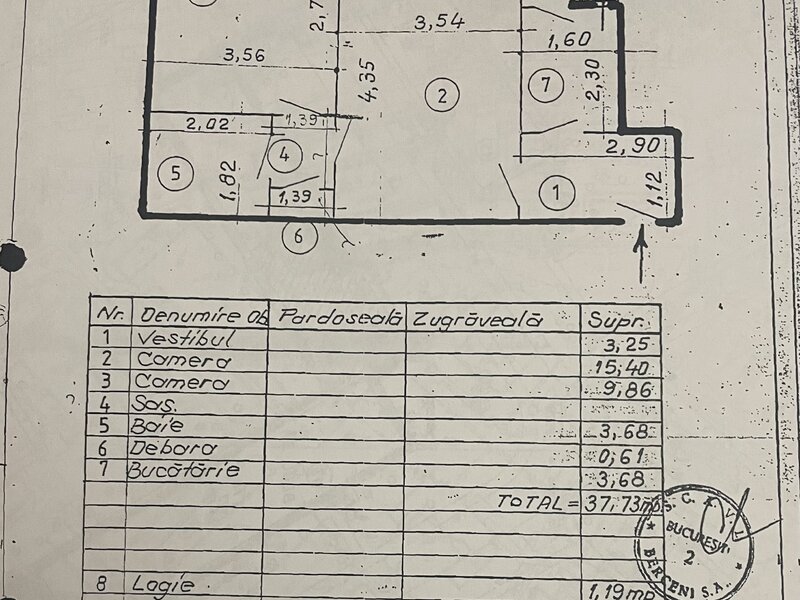 3,54
1,60
3,56
4,35
2
7
2,30
2,02
1,39
2,90
4
5
1,82
1,12
1,39
1
6
Nr. Denumire Ob Pardoseală Zugrăveală Supr.
1 Vestibul 3,25
2 Camera 15,40
3 Camera 9,86
4 Sas.
5 Baie 3,68
6 Debara 0,61
7 Bucătărie 3,68
TOTAL = 37,73mp.
S. C. A. V. I.
BUCUREȘTI
2
BERCENI S.A.
8 Logie 1,19 mp